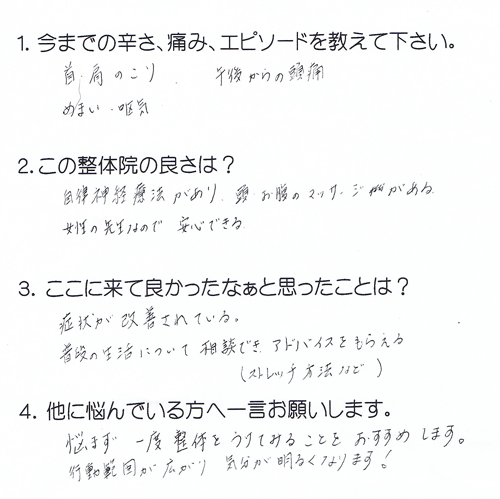 1. 今までの辛さ、痛み、エピソードを教えて下さい。
首・肩のこり 午後からの頭痛
めまい・吐気
2. この整体院の良さは？
自律神経療法があり、頭・お腹のマッサージがある
女性の先生なので 安心できる
3. ここに来て良かったなぁと思ったことは？
症状が改善されている。
普段の生活について 相談でき、アドバイスをもらえる
(ストレッチ方法など)
4. 他に悩んでいる方へ一言お願いします。
悩まず 一度 整体を うけてみることを おすすめします。
行動範囲が広がり 気分が明るくなります!